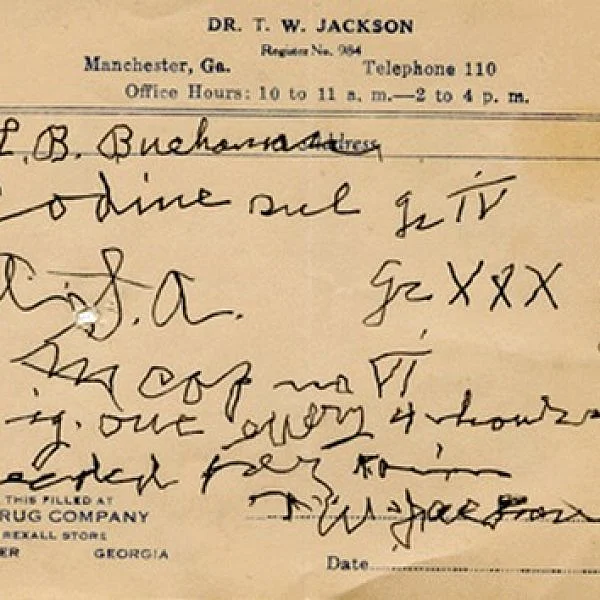 DR. T. W. JACKSON
Register No. 984
Manchester, Ga. Telephone 110
Office Hours: 10 to 11 a. m.—2 to 4 p. m.
L. B. Buchanan Address
Codine sul gr IV
A.S.A. gr XXX
M cap no VI
Sig. one every 4 hours
needed for pain
T W Jackson
THIS FILLED AT
RUG COMPANY
REXALL STORE
ER GEORGIA
Date